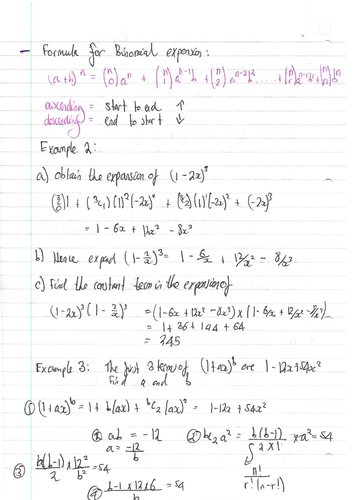 - Formula for Binomial expansion:
(a+b)ⁿ = (n 0) aⁿ + (n 1) aⁿ⁻¹b + (n 2) aⁿ⁻²b² ..... + (n r) aⁿ⁻ʳbʳ + (n n) bⁿ
ascending = start to end ↑
descending = end to start ↓
Example 2:
a) obtain the expansion of (1-2x)³
(3 0) 1 + (³C₁)(1)²(-2x)¹ + (3 2)(1)¹(-2x)² + (-2x)³
= 1 - 6x + 12x² - 8x³
b) Hence expand (1-2/x)³ = 1 - 6/x + 12/x² - 8/x³
c) Find the constant term in the expansion of
(1-2x)³ (1-2/x)³ = (1-6x+12x²-8x³)(1-6/x+12/x²-8/x³)
= 1+36+144+64
= 245
Example 3: The first 3 terms of (1+ax)ᵇ are 1-12x+54x²
Find a and b
① (1+ax)ᵇ = 1 + b(ax) + ᵇC₂(ax)² = 1-12x+54x²
ab = -12 ② bc₂a² = b(b-1)/2×1 × a² = 54
a = -12/b
③ b(b-1)/2 × 12²/b² = 54 n!/r!(n-r!)
④ b-1×12×6/b = 54